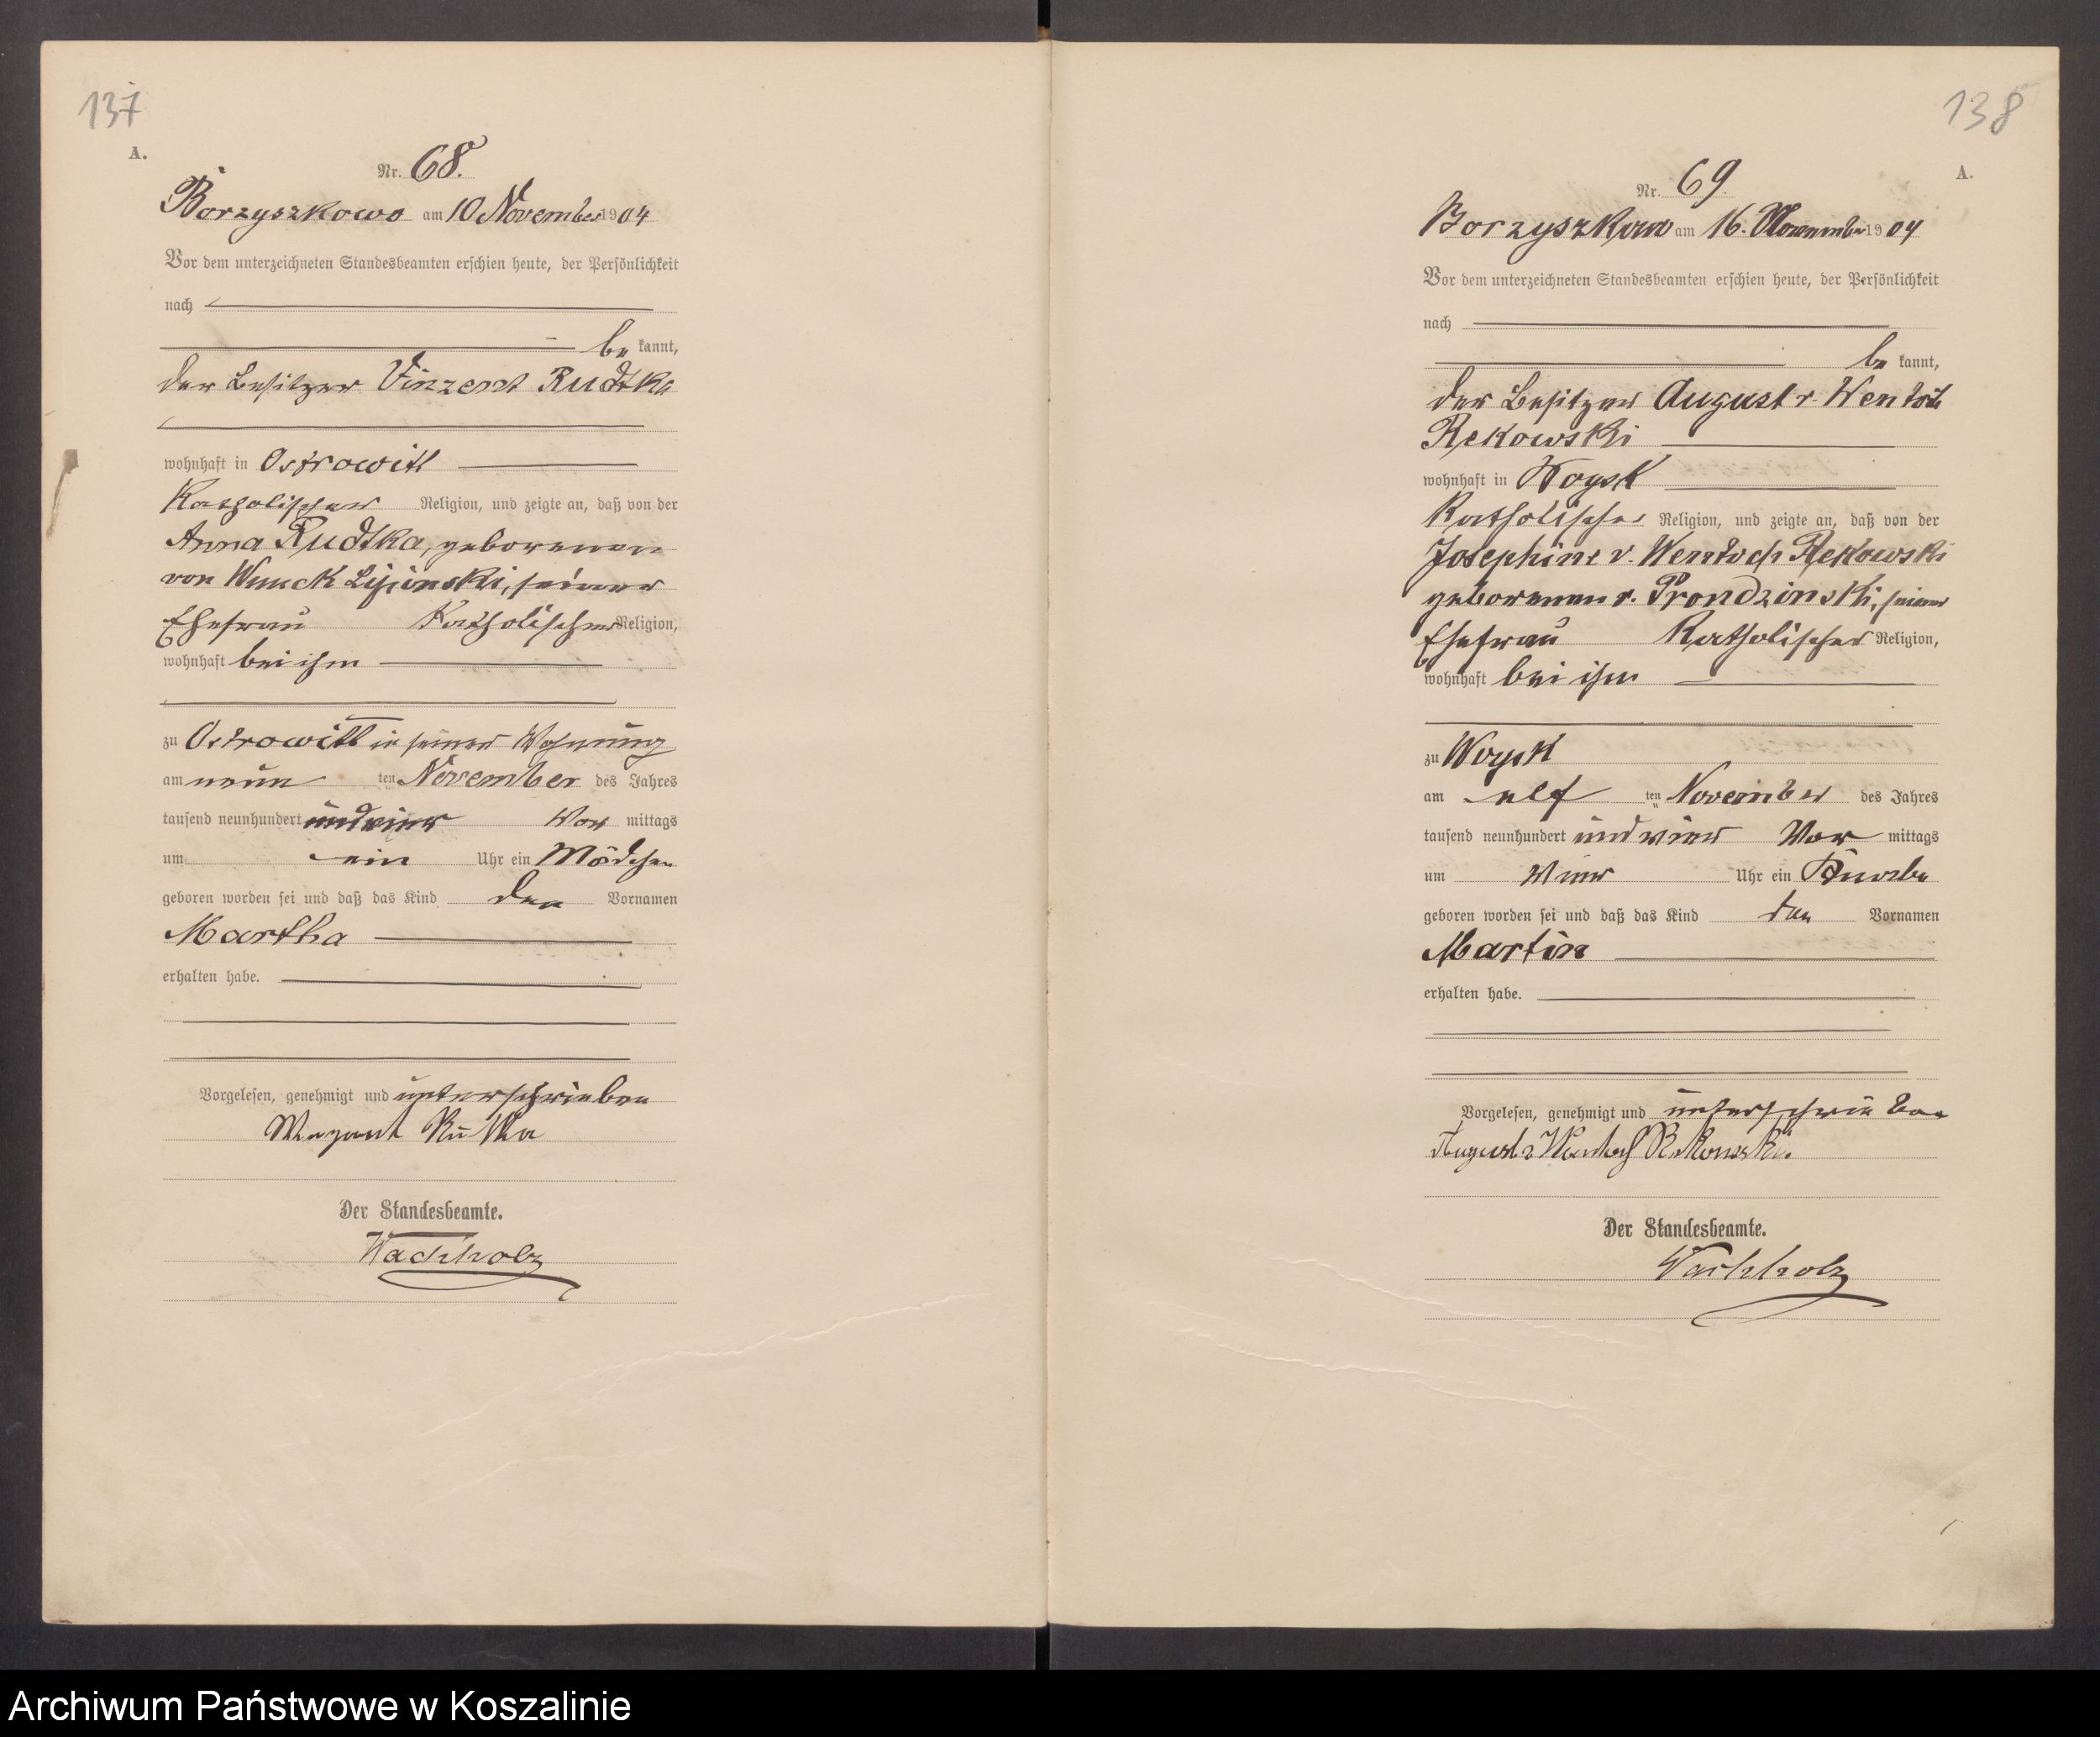 137
A.
Nr. 68.
Borzyszkowo am 10 November 1904
Vor dem unterzeichneten Standesbeamten erschien heute, der Persönlichkeit
nach
be kannt,
der Besitzer Vinzent Rudtka
wohnhaft in Ostrowitt
Katholischer Religion, und zeigte an, daß von der
Anna Rudtka, geborenen
von Wnuck Lipinski, seiner
Ehefrau Katholischer Religion,
wohnhaft bei ihm
zu Ostrowitt in seiner Wohnung
am neun ten November des Jahres
tausend neunhundert und vier Vor mittags
um ein Uhr ein Mädchen
geboren worden sei und daß das Kind den Vornamen
Martha
erhalten habe.
Vorgelesen, genehmigt und unterschrieben
Der Standesbeamte.
Wachholz
138
A.
Nr. 69.
Borzyszkowo am 16. November 1904
Vor dem unterzeichneten Standesbeamten erschien heute, der Persönlichkeit
nach
be kannt,
der Besitzer August v. Wentoch
Rekowski
wohnhaft in Woysk
Katholischer Religion, und zeigte an, daß von der
Josephine v. Wentoch Rekowski
geborenen v. Prondzinski, seiner
Ehefrau Katholischer Religion,
wohnhaft bei ihm
zu Woysk
am elf ten November des Jahres
tausend neunhundert und vier Vor mittags
um vier Uhr ein Knabe
geboren worden sei und daß das Kind den Vornamen
Martin
erhalten habe.
Vorgelesen, genehmigt und unterschrieben
August v Wentoch Rekowski.
Der Standesbeamte.
Wachholz
Archiwum Państwowe w Koszalinie